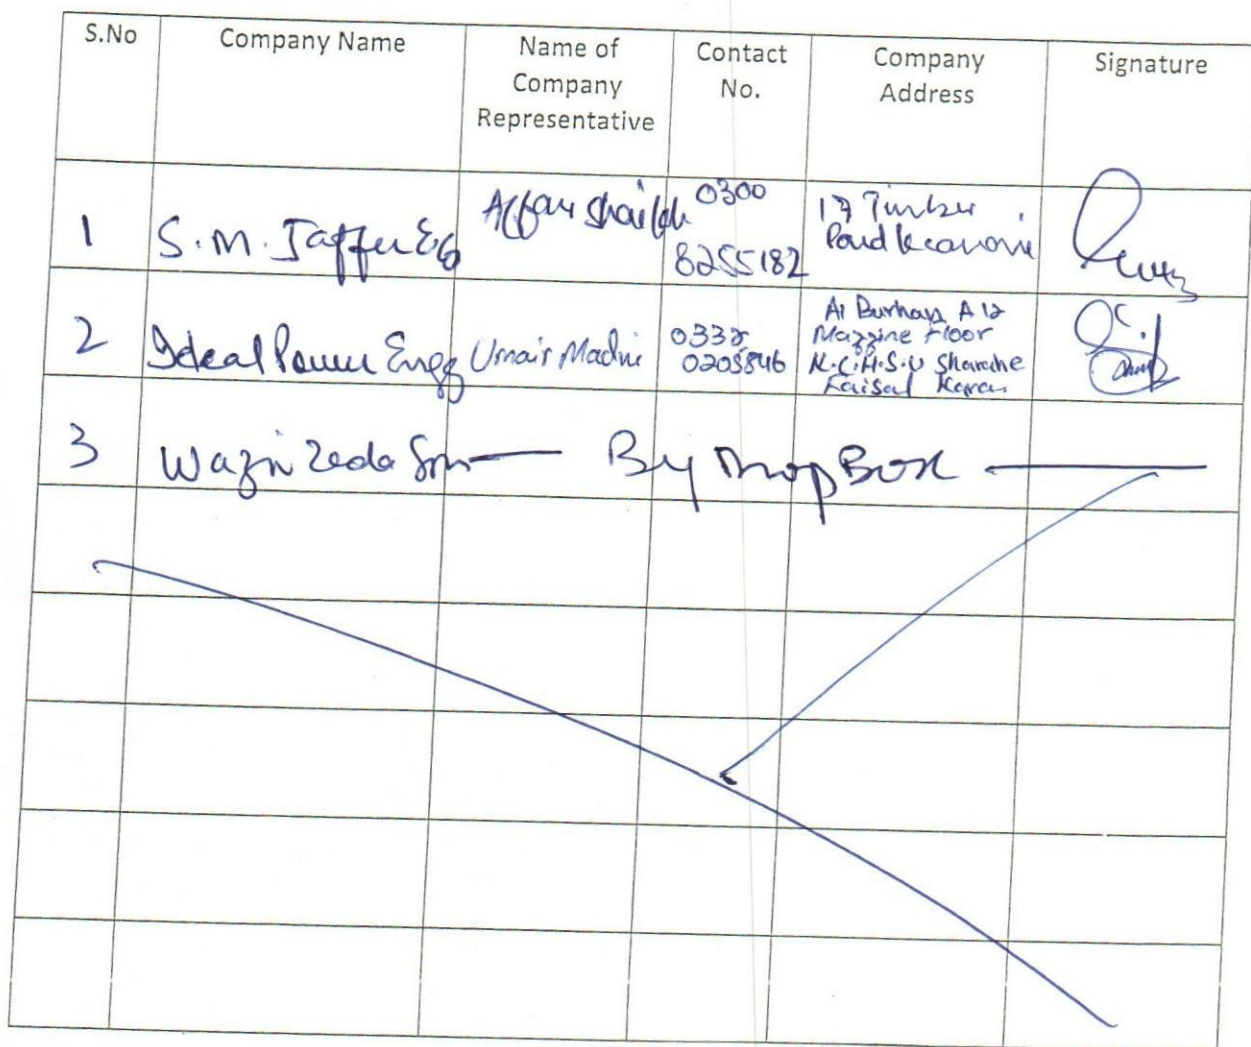 S.No Company Name Name of Company Representative Contact No. Company Address Signature
1 S.M. Jaffer Shaikh 0300 8255182 17 Timber
2 Ideal Power Engg Umair Madni 0332 0205846 Al Burhan A 12 Mazzine Floor K.C.H.S.U Sharahe Faisal
3 By Drop Box